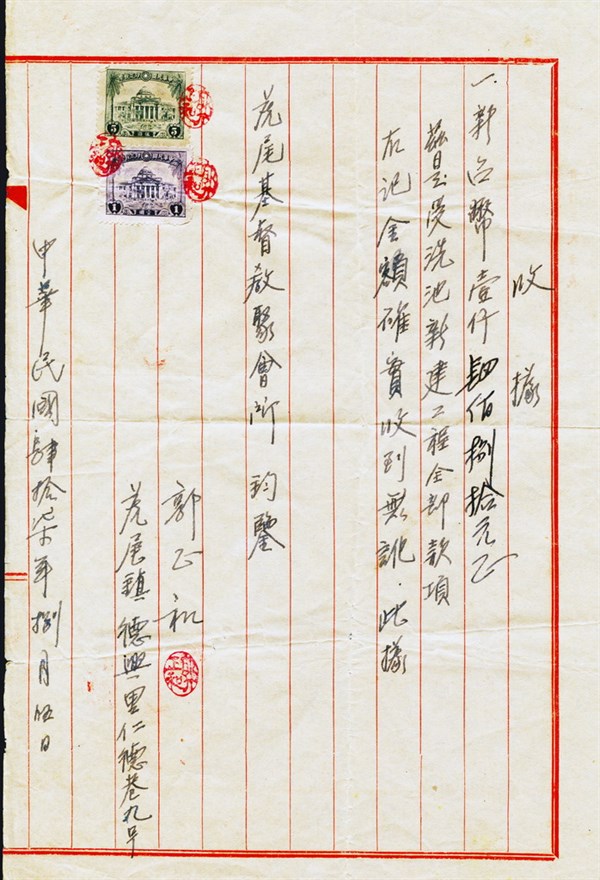 收據
一.新台幣壹仟肆佰捌拾元正
茲是浸洗池新建工程全部款項
右記金額確實收到無訛.此據
虎尾基督教聚會所 鈞鑒
郭正和
虎尾鎮德興里仁德巷九号
中華民國肆拾柒年捌月伍日
5
1